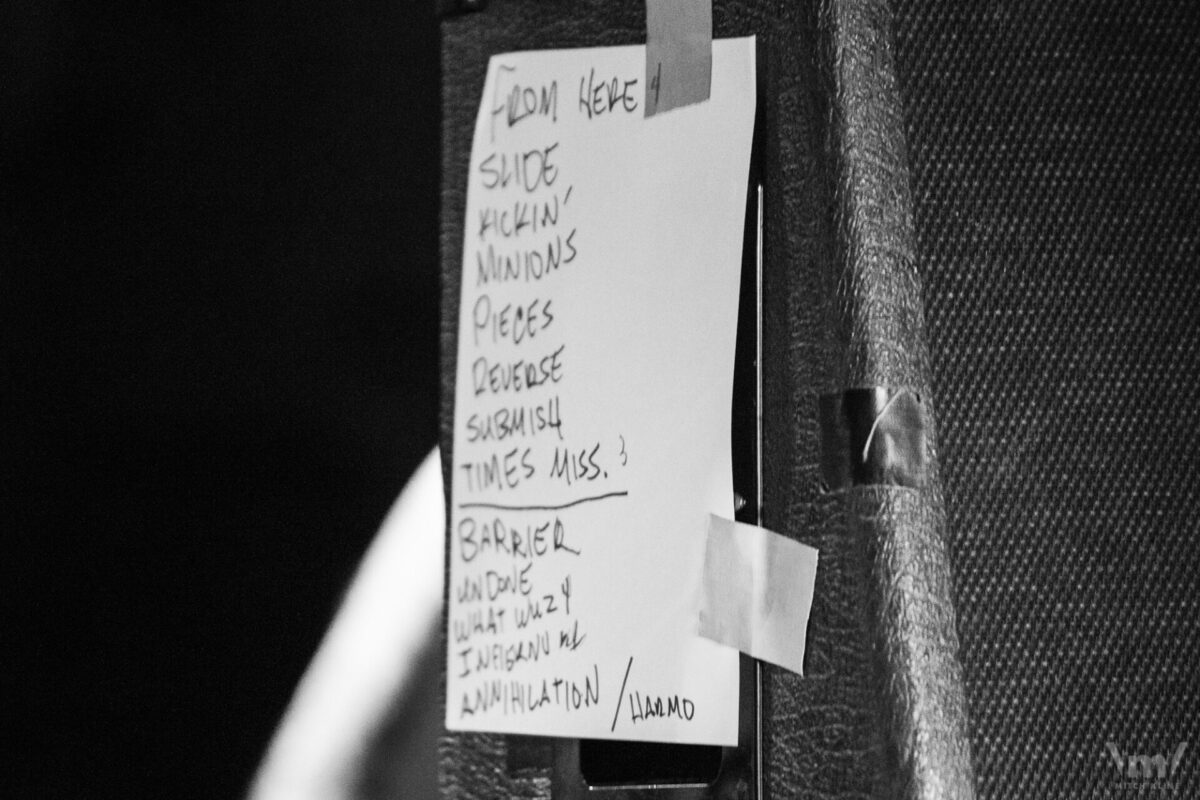 FROM HERE
SLIDE
KICKIN'
MINIONS
PIECES
REVERSE
SUBMISH
TIMES MISS. 3
BARRIER
UNDONE
WHAT WUZ 4
ANNIHILATION / HARMO
MITCH KLINE